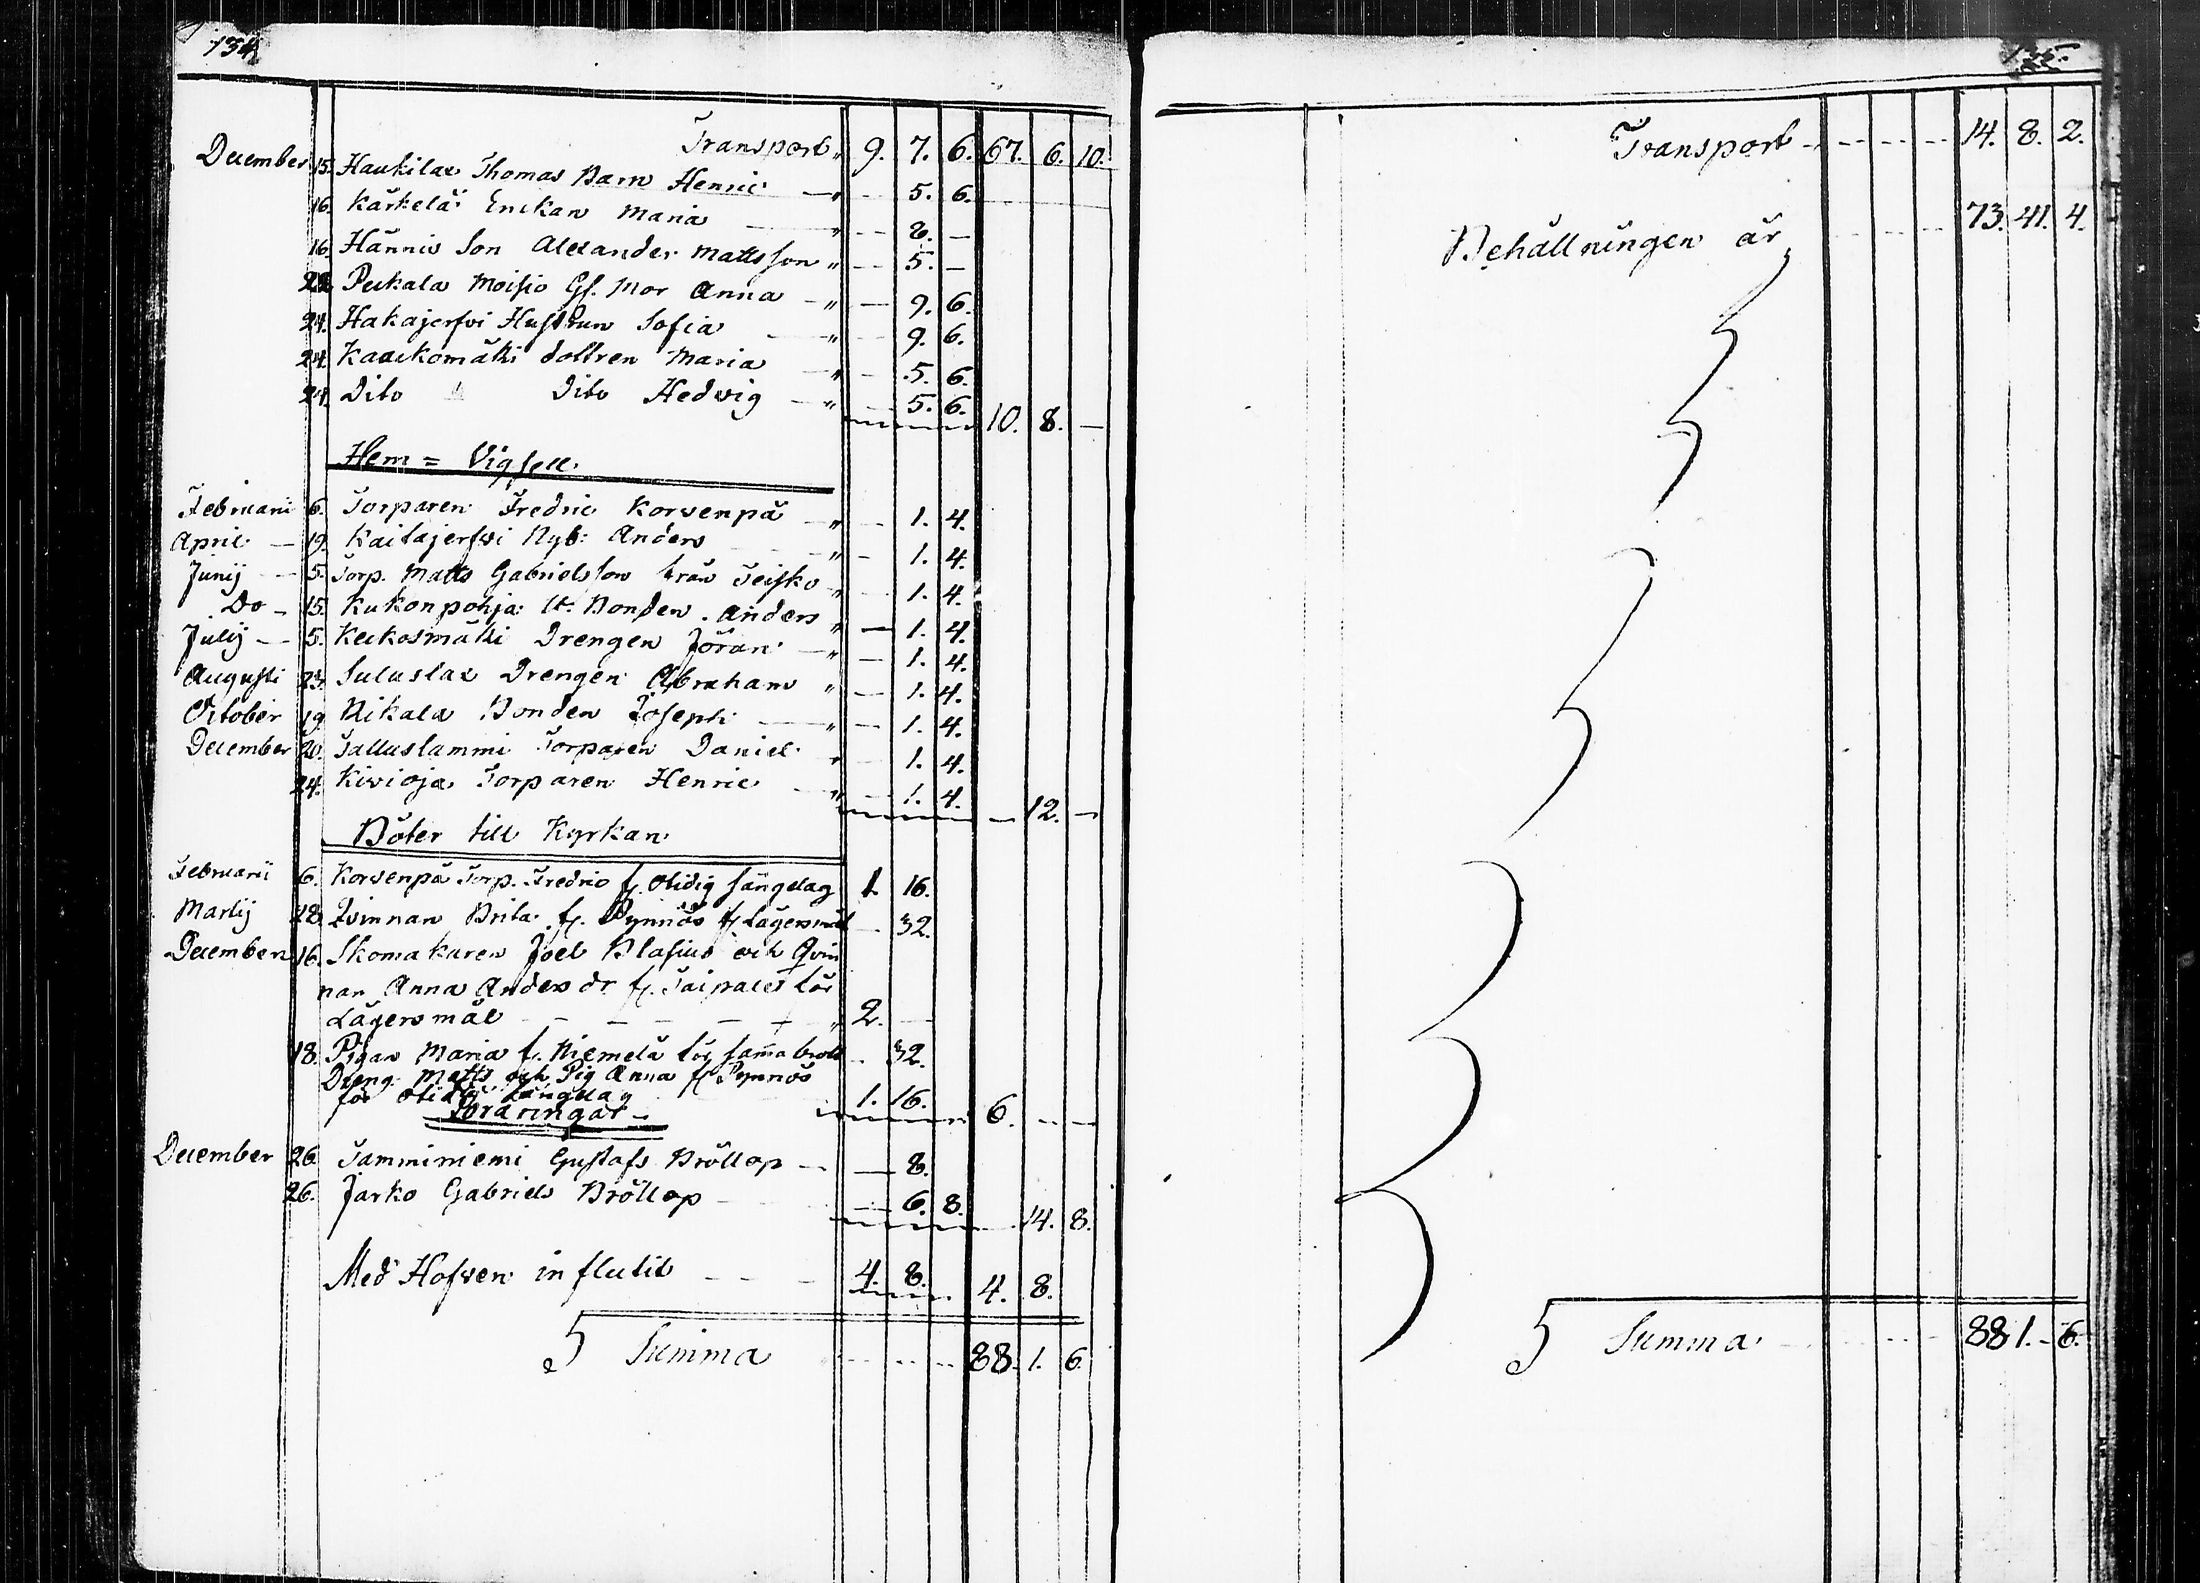 134.
Transport " 9. 7. 6. 67. 6. 10.
December 15. Haukilax Thomas Barn Henric — " — 5. 6.
16. Kärkelä Enckan Maria — " — 8. —
16. Hännis Son Alexander Mattsson " — 5. —
22. Peckala Moisio Gf. Mor Anna — " — 9. 6.
24. Hakajerfvi Hustrun Sofia — " — 9. 6.
24. Kauckomäki dottren Maria — " — 5. 6.
24. Dito Dito Hedwig — " — 5. 6. 10. 8. —
Hem = Vigsell.
Februarii 6. Torparen Fredric Korvenpä — " — 1. 4.
April — 19. Kaitajerfvi Nyb: Anders — " — 1. 4.
Junij — 5. Torp. Matts Gabrielsson från Teisko — 1. 4.
Do — 15. Kukonpohja U. Bonden Anders " — 1. 4.
Julij — 5. Keckosmäki Drengen Jöran — " — 1. 4.
Augusti 23. Suluslax Drengen Abraham " — 1. 4.
October 19. Nikala Bonden Joseph — " — 1. 4.
December 20. Talluslammi Torparen Daniel " — 1. 4.
24. Kivioja Torparen Henric — " — 1. 4. — 12. —
Böter till Kyrkan
Februarii 6. Korvenpä Torp. Fredric f. Otidig Sängelag 1. 16.
Martij 12. Qvinnan Brita f. Pynnös f. Lägersmål — 32.
December 16. Skomakaren Joel Blasius och Qvin
nan Anna Anders dr f. Taipalet för
Lägersmål — — — — — " 2. —
18. Pigan Maria f. Niemelä för samma brott — 32.
Dreng. Matts och Pig Anna f. Pynnös
för Otidig Sängelag 1. 16. 6. — —
Föräringar
December 26. Tamminiemi Gustafs Bröllop — — 8.
26. Jarko Gabriels Bröllop — — 6. 8. — 14. 8.
Med Hofven influtit — — — 4. 8. 4. 8.
Summa — — — 88. 1. 6.
135.
Transport — — — — 14. 8. 2.
Behållningen är — — — 73. 41. 4.
Summa — — — 88 1. — 6.